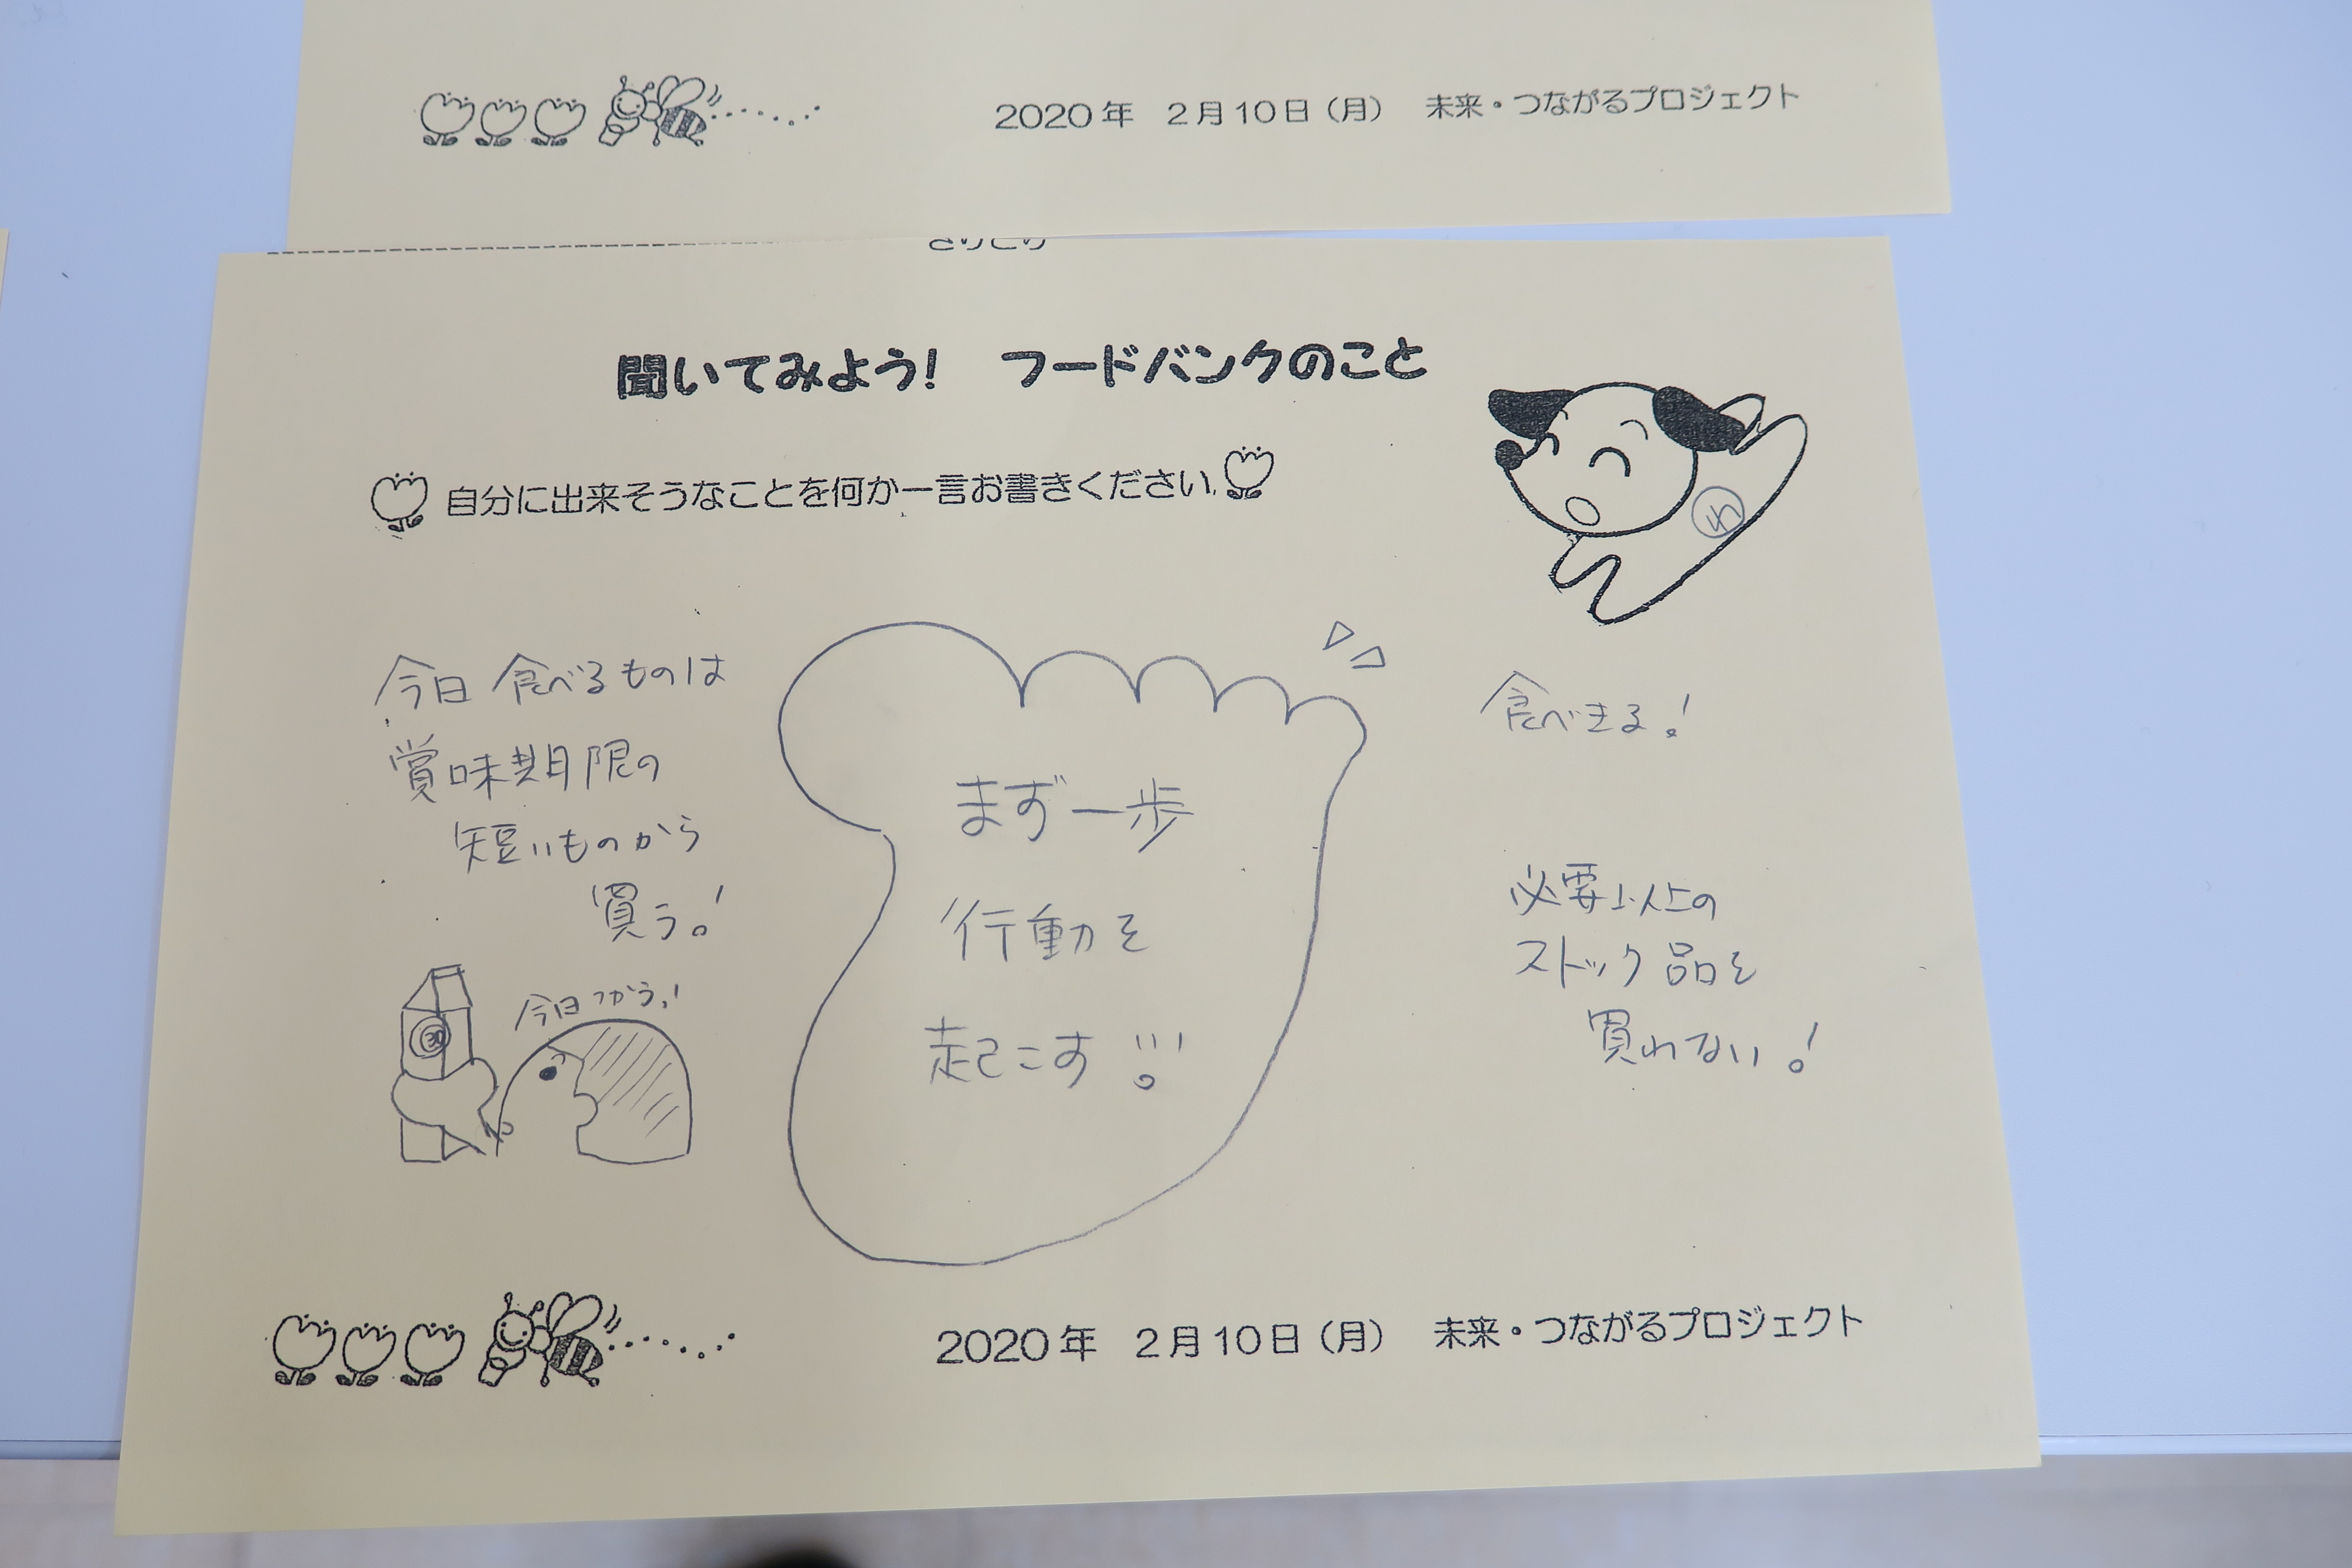 2020年　2月10日（月）　未来・つながるプロジェクト
聞いてみよう！　フードバンクのこと
自分に出来そうなことを何か一言お書きください
今日食べるものは
賞味期限の
短いものから
買う！
今日つかう！
まず一歩
行動を
起こす!!!
食べきる！
必要以上の
ストック品を
買わない！
2020年　2月10日（月）　未来・つながるプロジェクト